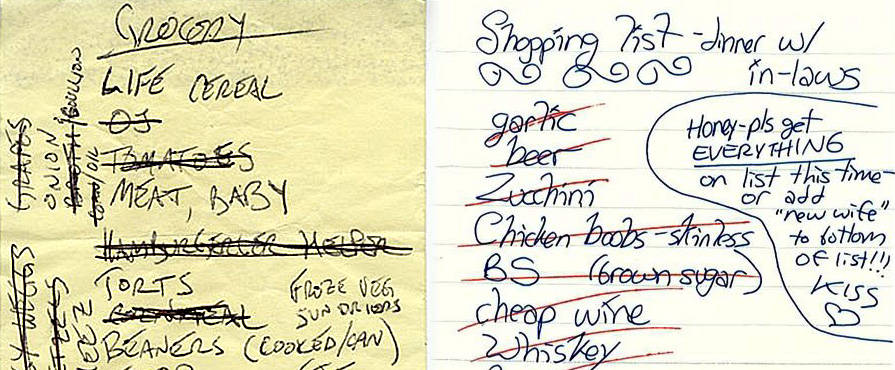 GROCERY
LIFE CEREAL
OJ
TOMATOES
MEAT, BABY
HAMBURGERLER HELPER
TORTS
CORNMEAL
FROZE VEG
SUN DRIODS
BEANERS (COOKED/CAN)
GRAPES
ONION
BROTH/BOUILLON
Shopping list - dinner w/
in-laws
garlic
beer
Zucchini
Chicken boobs - skinless
BS (brown sugar)
cheap wine
Whiskey
Honey - pls get
EVERYTHING
on list this time -
or add
"new wife"
to bottom
of list!!!
KISS